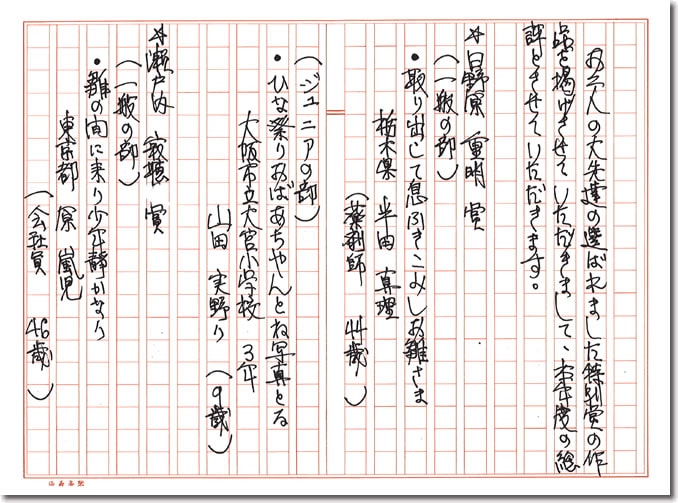 お二人の大先達の選ばれました特別賞の作
品を掲げさせていただきまして、本年度の総
評とさせていただきます。
☆日野原 重明 賞
(一般の部)
・取り出して息ふきこみしお雛さま
栃木県 半田 真理
(薬剤師 44歳)
(ジュニアの部)
・ひな祭りおばあちゃんとね写真とる
大阪市立大宮小学校 3年
山田 実野り (9歳)
☆瀬戸内 寂聴 賞
(一般の部)
・雛の間に来り少年静かなり
東京都 原 嵐児
(会社員 46歳)